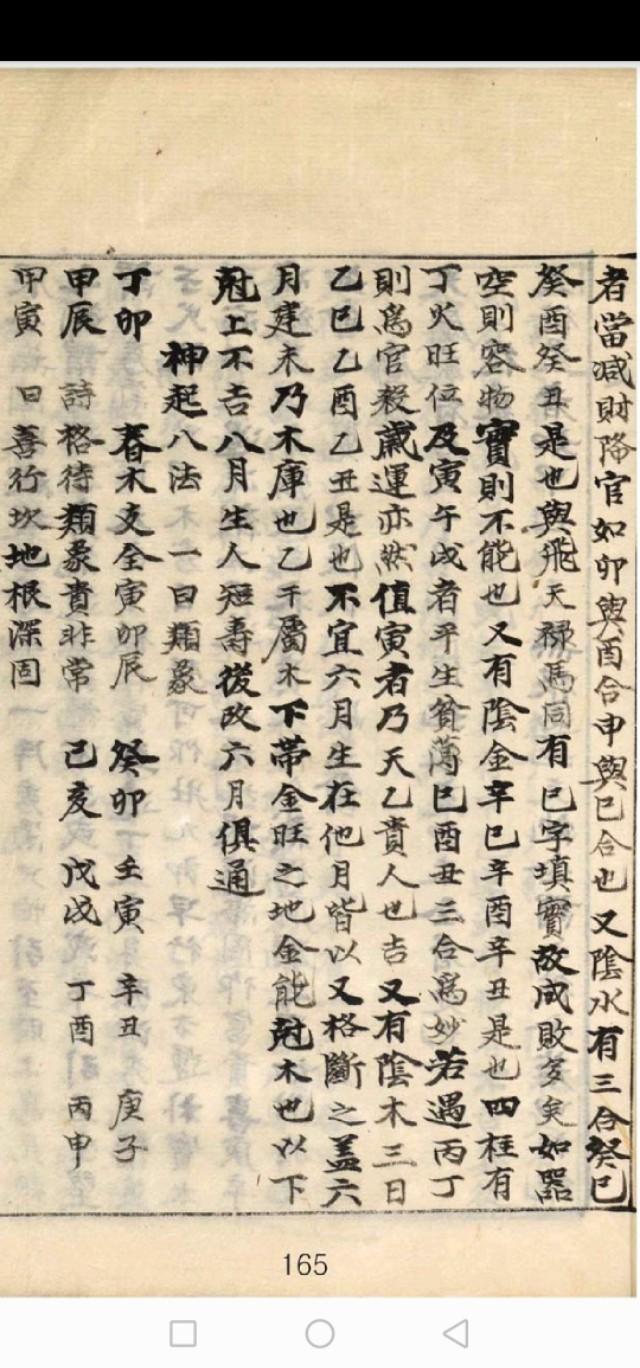 者當減財降官如卯與酉合申與巳合也又陰水有三合癸巳
癸酉癸丑是也與飛天祿馬同有巳字填實故成敗多矣如器
空則容物實則不能也又有陰金辛巳辛酉辛丑是也四柱有
丁火旺位及寅午戌者平生貧薄巳酉丑三合為妙若遇丙丁
則為官殺歲運亦然值寅者乃天乙貴人也吉又有陰木三日
乙巳乙酉乙丑是也不宜六月生在他月皆以又格斷之蓋六
月建未乃木庫也乙干屬木下帶金旺之地金能尅木也以下
尅上不吉八月生人短壽後改六月俱通
神起八法 一曰類象
丁卯 春木支全寅卯辰 癸卯 壬寅 辛丑 庚子
甲辰 詩 格待類象貴非常 己亥 戊戌 丁酉 丙申
甲寅 曰 善行坎地根深固
165